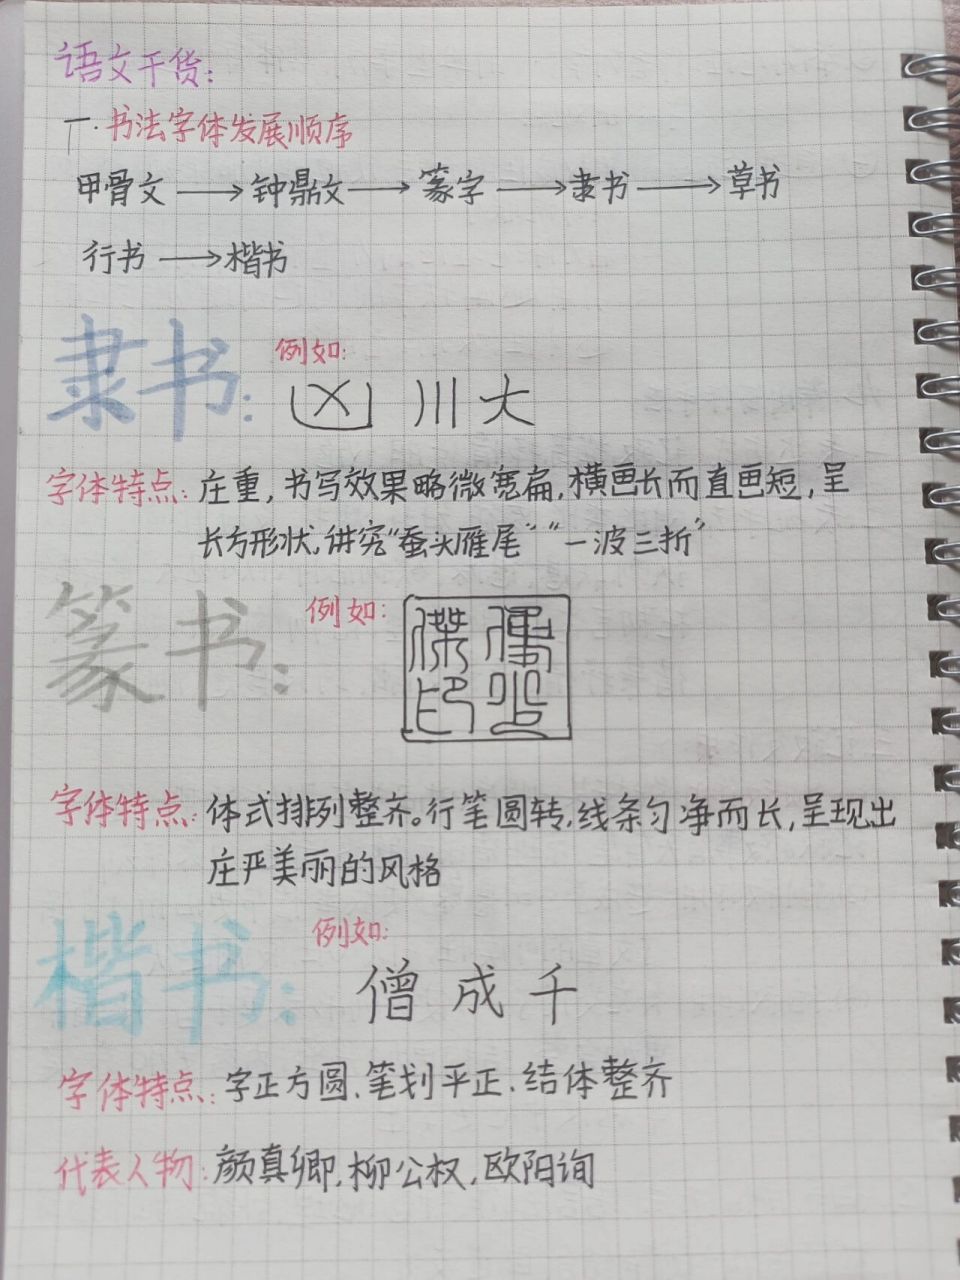 语文干货:
一.书法字体发展顺序
甲骨文→钟鼎文→篆字→隶书→草书
行书→楷书
隶书:
例如:
凶 川 大
字体特点:庄重,书写效果略微宽扁,横画长而直画短,呈
长方形状,讲究“蚕头雁尾”“一波三折”
篆书:
例如:
字体特点:体式排列整齐。行笔圆转,线条匀净而长,呈现出
庄严美丽的风格
楷书:
例如:
僧 成 千
字体特点:字正方圆、笔划平正、结体整齐
代表人物:颜真卿,柳公权,欧阳询